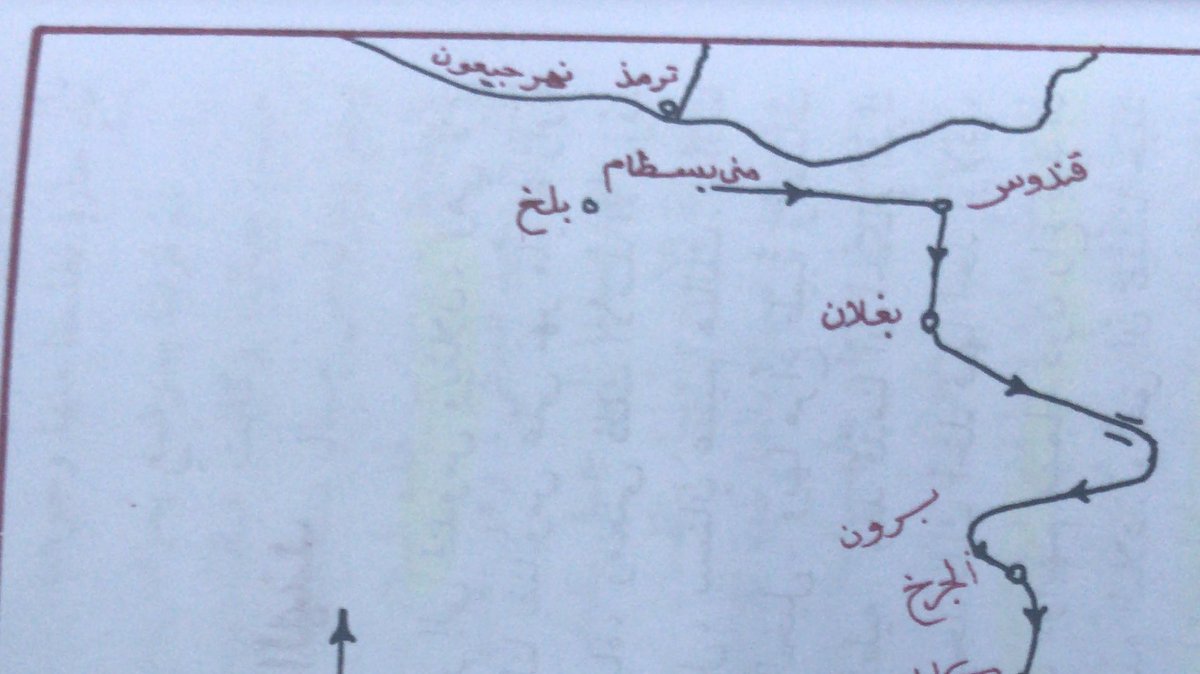 ترمذ نهر جيحون
من بسطام
قندوس
بلخ
بغلان
برون
الجرخ